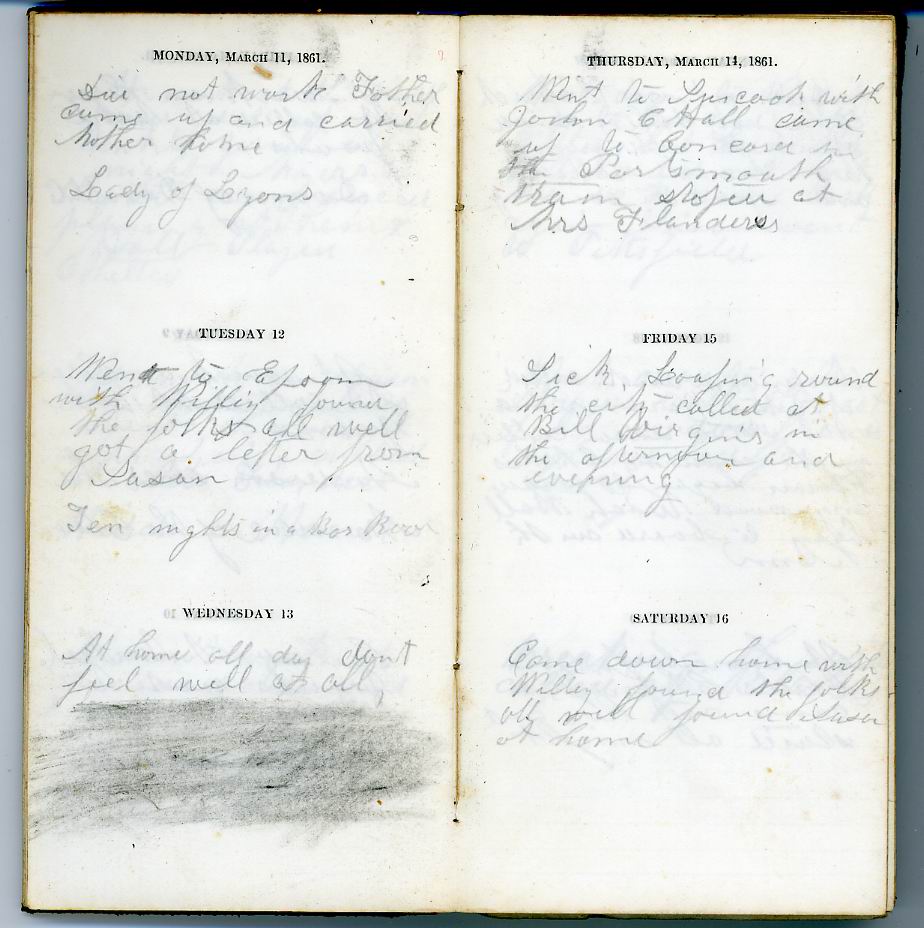 MONDAY, MARCH 11, 1861.
Did not work Father
came up and carried
Mother home
Lady of Lyons
TUESDAY 12
Went to Epsom
with found
the folks all well
got a letter from
Susan
Ten nights in a Bar Room
WEDNESDAY 13
At home all day dont
feel well at all,
THURSDAY, MARCH 14, 1861.
Went to Suncook with
C Hall came
up to Concord in
the Portsmouth
train stoped at
Mrs Flanders
FRIDAY 15
Sick, Loafing round
the city called at
Bill Virgins in
the afternoon and
evening
SATURDAY 16
Come down home with
Willey found the folks
all well found Susan
at home